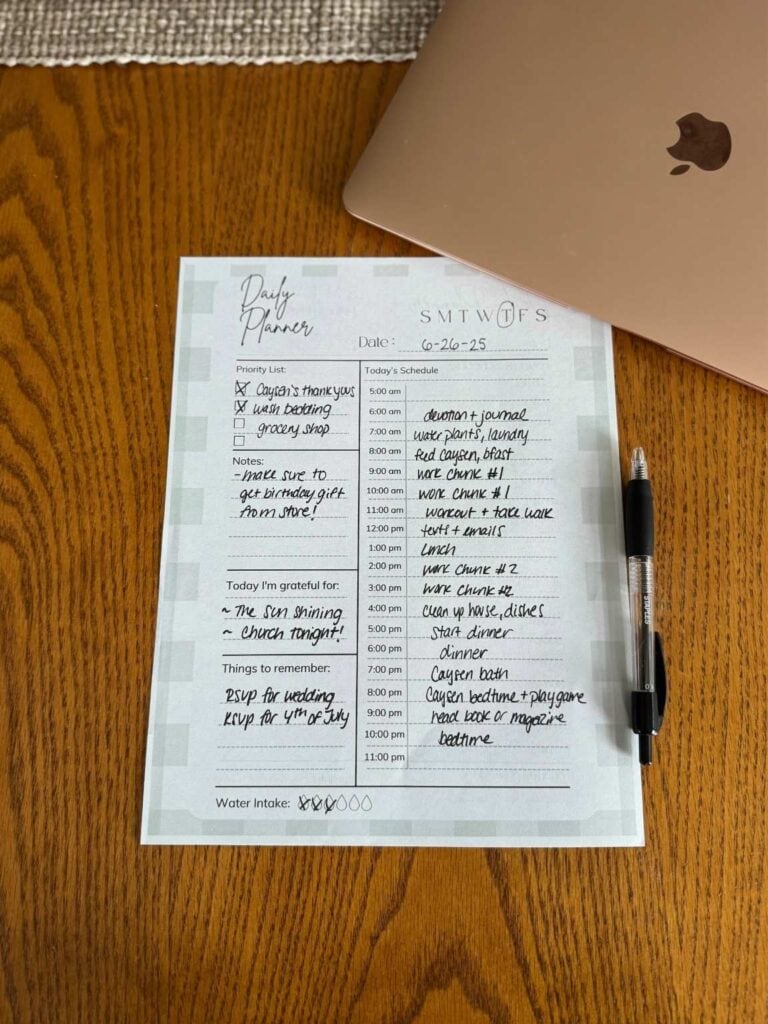 Daily
Planner
S M T W T F S
Date: 6-26-25
Priority List:
Caysen's thank yous
wash bedding
grocery shop
Notes:
-make sure to
get birthday gift
from store!
Today I'm grateful for:
~ The sun shining
~ Church tonight!
Things to remember:
RSVP for wedding
RSVP for 4th of July
Today's Schedule
5:00 am
6:00 am devotion + journal
7:00 am water plants, laundry
8:00 am feed Caysen, bfast
9:00 am work chunk #1
10:00 am work chunk #1
11:00 am workout + take walk
12:00 pm texts + emails
1:00 pm lunch
2:00 pm work chunk #2
3:00 pm work chunk #2
4:00 pm clean up house, dishes
5:00 pm start dinner
6:00 pm dinner
7:00 pm Caysen bath
8:00 pm Caysen bedtime + play game
9:00 pm read book or magazine
10:00 pm bedtime
11:00 pm
Water Intake: